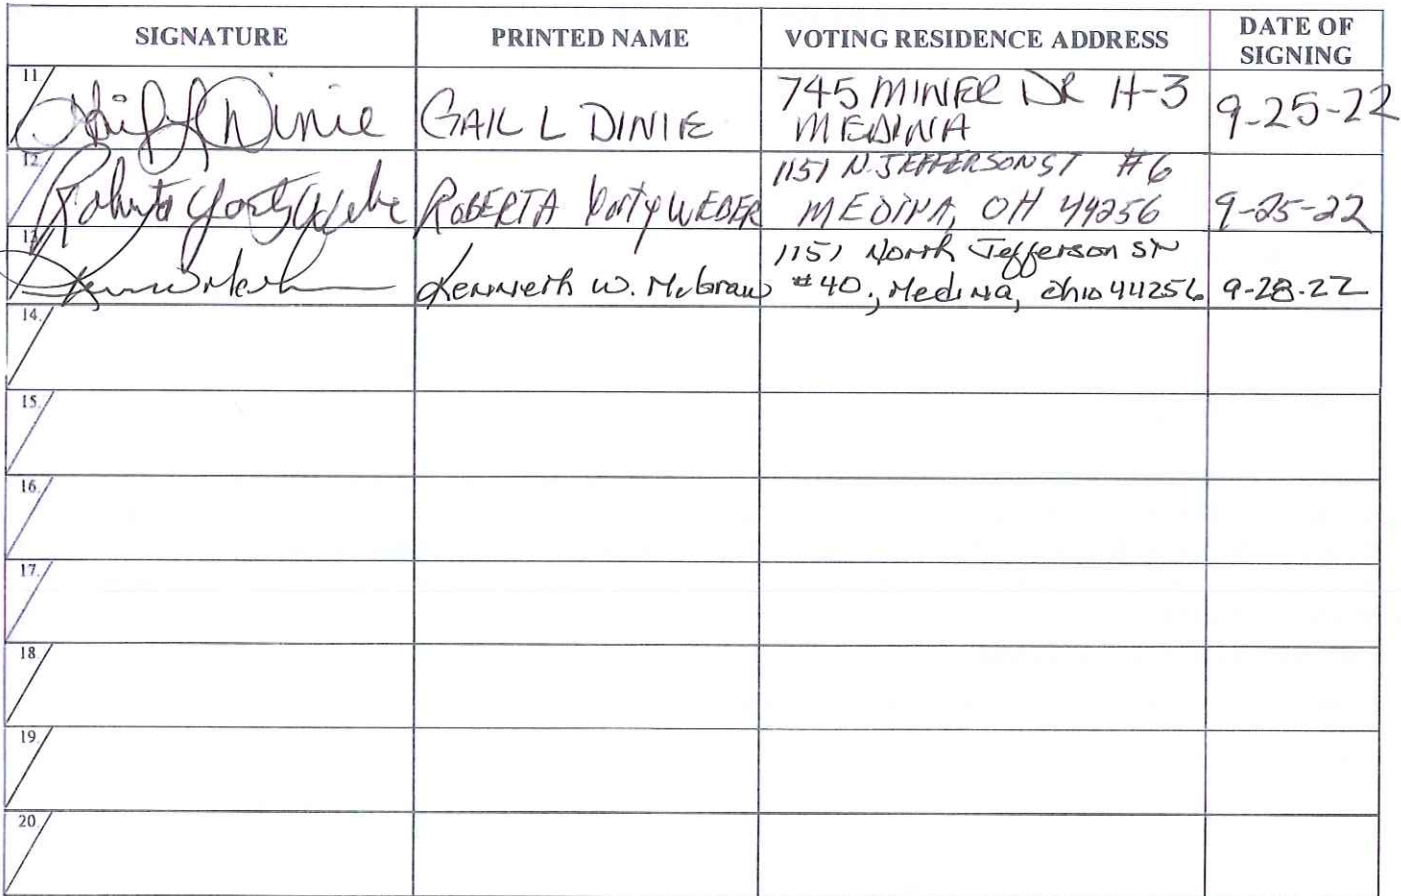 SIGNATURE PRINTED NAME VOTING RESIDENCE ADDRESS DATE OF
SIGNING
11
Dinie GAIL L DINIE 745 MINER DR H-3
MEDINA 9-25-22
12.
Roberta Weber ROBERTA WEBER 1151 N. JEFFERSON ST #6
MEDINA, OH 44256 9-25-22
13.
Kenneth W. McGraw 1151 North Jefferson St
#40., Medina, Ohio 44256 9-28-22
14.
15.
16.
17.
18.
19.
20.